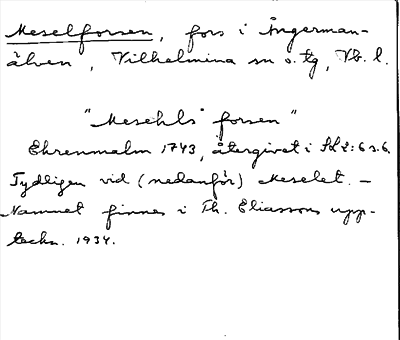 Meselforsen, fors i Ångerman-
älven, Vilhelmina sn o. tg, Vb. l.
"Mesehls forsen"
Ehrenmalm 1743, återgivet i SL 2:6 s.6.
Tydligen vid (nedanför) Meselet. –
Namnet finnes i Th. Eliassons upp-
teckn. 1934.